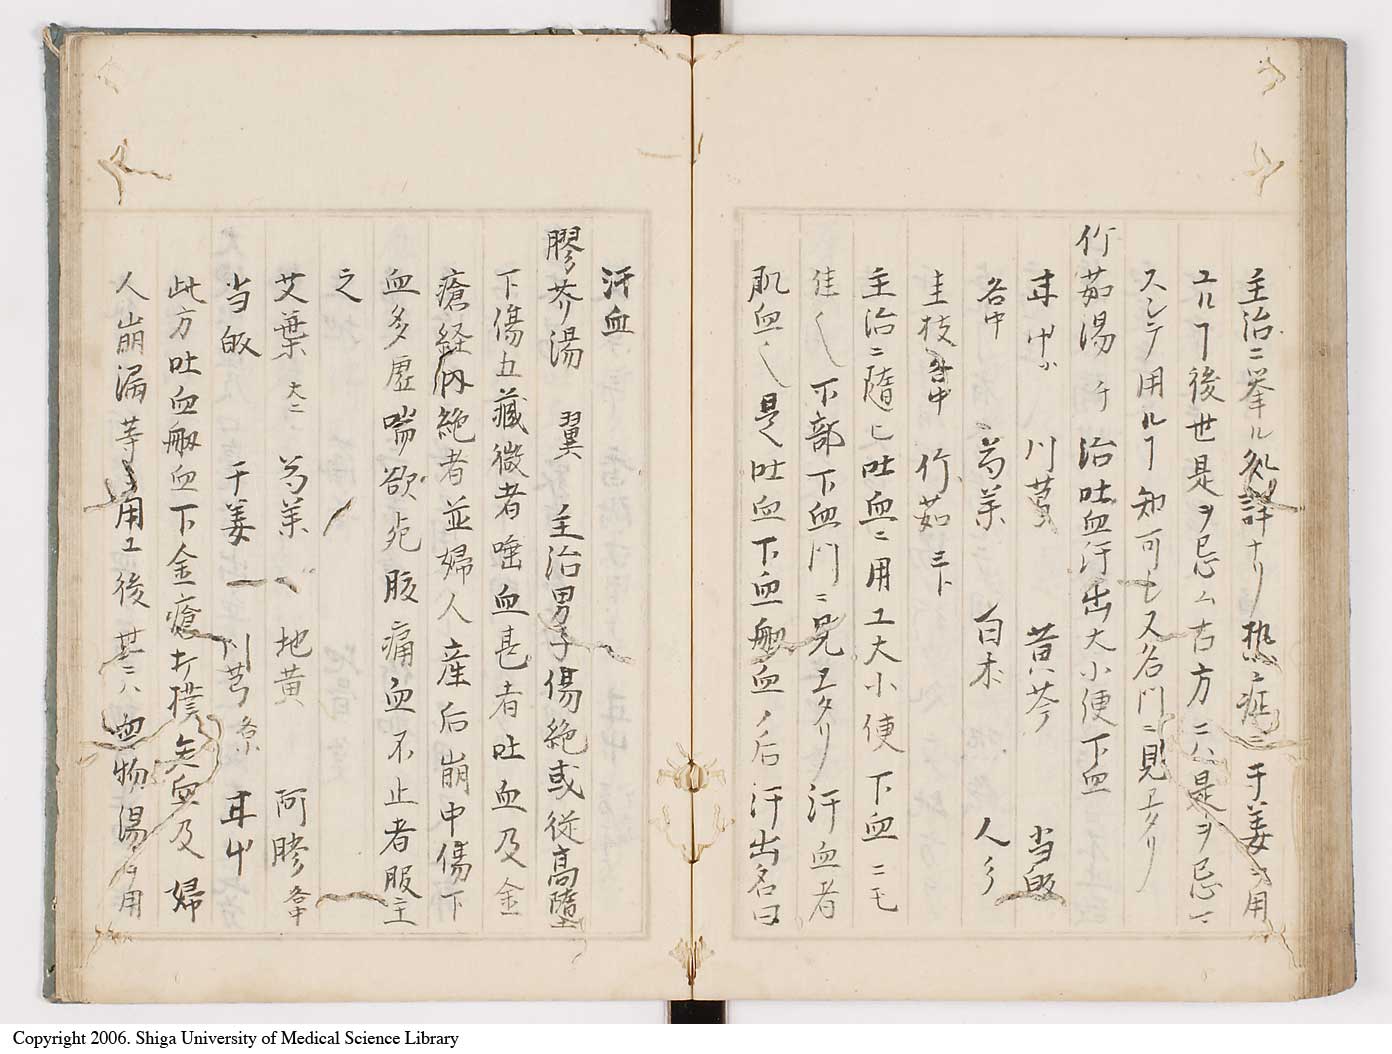 主治ニ挙ル処詳ナリ热症ニ干姜ヲ用
ユルヿ後世是ヲ忌ム古方ニハ是ヲ忌マ
スシテ用ルヿ知可シ又名門ニ見エタリ
竹茹湯 治吐血汗出大小便下血
甘中小 川芎 黄芩 当皈
各中 芍薬 白朮 人参
圭枝各中 竹茹三下
主治ニ隨ヒ吐血ニ用エ大小便下血ニモ
佳〱下部下血門ニ見エタリ汗血者
肌血〱是吐血下血衂血ノ后汗出名曰
汗血
膠芥湯 翼 主治男子傷絶或従高墮
下傷五藏微者唾血甚者吐血及金
瘡経内絶者並婦人産后崩中傷下
血多虚喘欲死腹痛血不止者服主
之
艾葉大二 芍薬 地黄 阿膠各中
当皈 干姜 川芎各小 甘中
此方吐血衂血下金瘡打撲失血及婦
人崩漏等ヲ用エ後世ニハ四物湯ヲ用